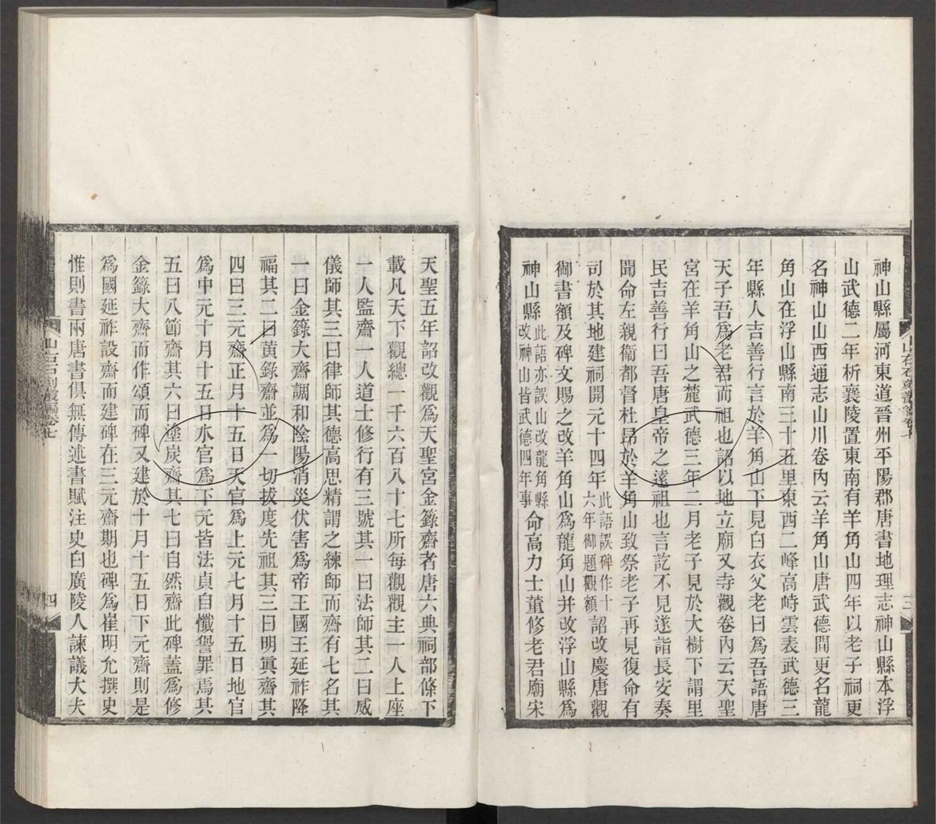 神山縣屬河東道晉州平陽郡唐書地理志神山縣本浮
山武德二年析襄陵置東南有羊角山四年以老子祠更
名神山山西通志山川卷內云羊角山唐武德間更名龍
角山在浮山縣南三十五里東西二峰高峙雲表武德三
年縣人吉善行言於羊角山下見白衣父老曰爲吾語唐
天子吾爲老君而祖也詔以地立廟又寺觀卷內云天聖
宮在羊角山之麓武德三年二月老子見於大樹下謂里
民吉善行曰吾吾唐皇帝之遠祖也言訖不見遂詣長安奏
聞命左親衛都督杜昂於羊角山致祭老子再見復命有
司於其地建祠開元十四年此語誤碑作十六年御題觀額詔改慶唐觀
御書額及碑文賜之改羊角山爲龍角山并改浮山縣爲
神山縣此語亦誤山改龍角縣改神山皆武德四年事命高力士董修老君廟宋
三
天聖五年詔改觀爲天聖宮金籙齋者唐六典祠部條下
載凡天下觀總一千六百八十七所每觀觀主一人上座
一人監齋一人道士修行有三號其一曰法師其二曰威
儀師其三曰律師其德高思精謂之練師而齋有七名其
一曰金籙大齋調和陰陽消災伏害爲帝王國王延祚降
福其二曰黃籙齋並爲一切拔度先祖其三曰明眞齋其
四曰三元齋正月十五日天官爲上元七月十五日地官
爲中元十月十五日水官爲下元皆法貞自懺𠎝罪焉其
五曰八節齋其六曰塗炭齋其七曰自然齋此碑蓋爲修
金籙大齋而作頌而碑又建於十月十五日下元齋則是
爲國延祚設齋而建碑在三元齋期也碑爲崔明允撰史
惟則書兩唐書俱無傳述書賦注史白廣陵人諫議大夫
四